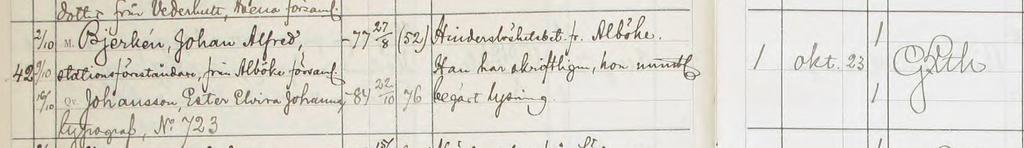 dotter från Vederhult, Mena församl.
2/10 M. Bjerkén, Johan Alfred, -77 27/8 (52) Hinderslöshetsbet. fr. Alböke. 1
42 9/10 stationsföreståndare, från Alböke församl. Han har skriftligen, hon muntl. 1 okt. 23 Gth
16/10 Qv. Johansson, Ester Elvira Johanna, -84 22/10 76 begärt lysning. 1
typograf, No 723